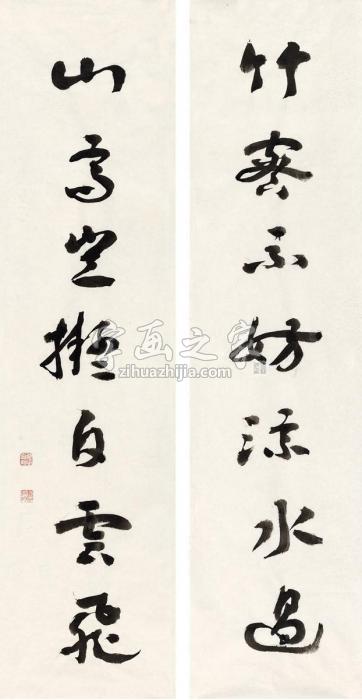 竹密不妨流水過
山高豈礙白雲飛
字画之家
zihuazhijia.com